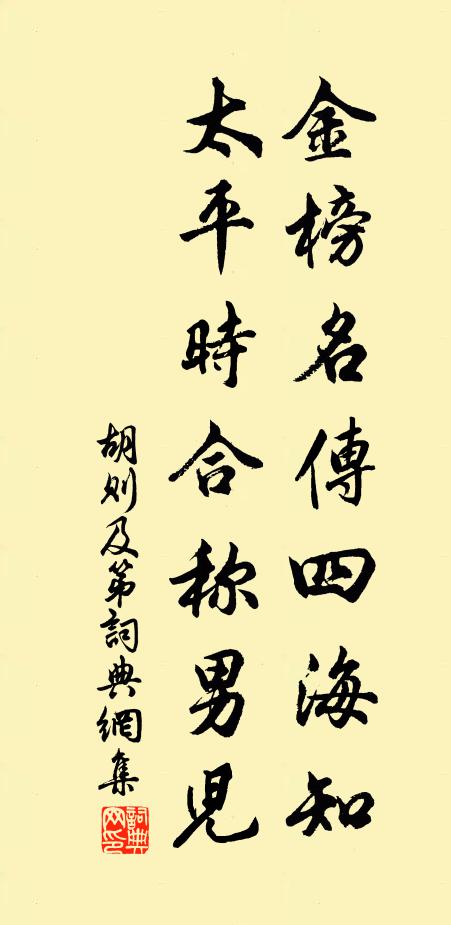 金榜名傳四海知
太平時合称男児
胡则及第詞典網集
詞典网印